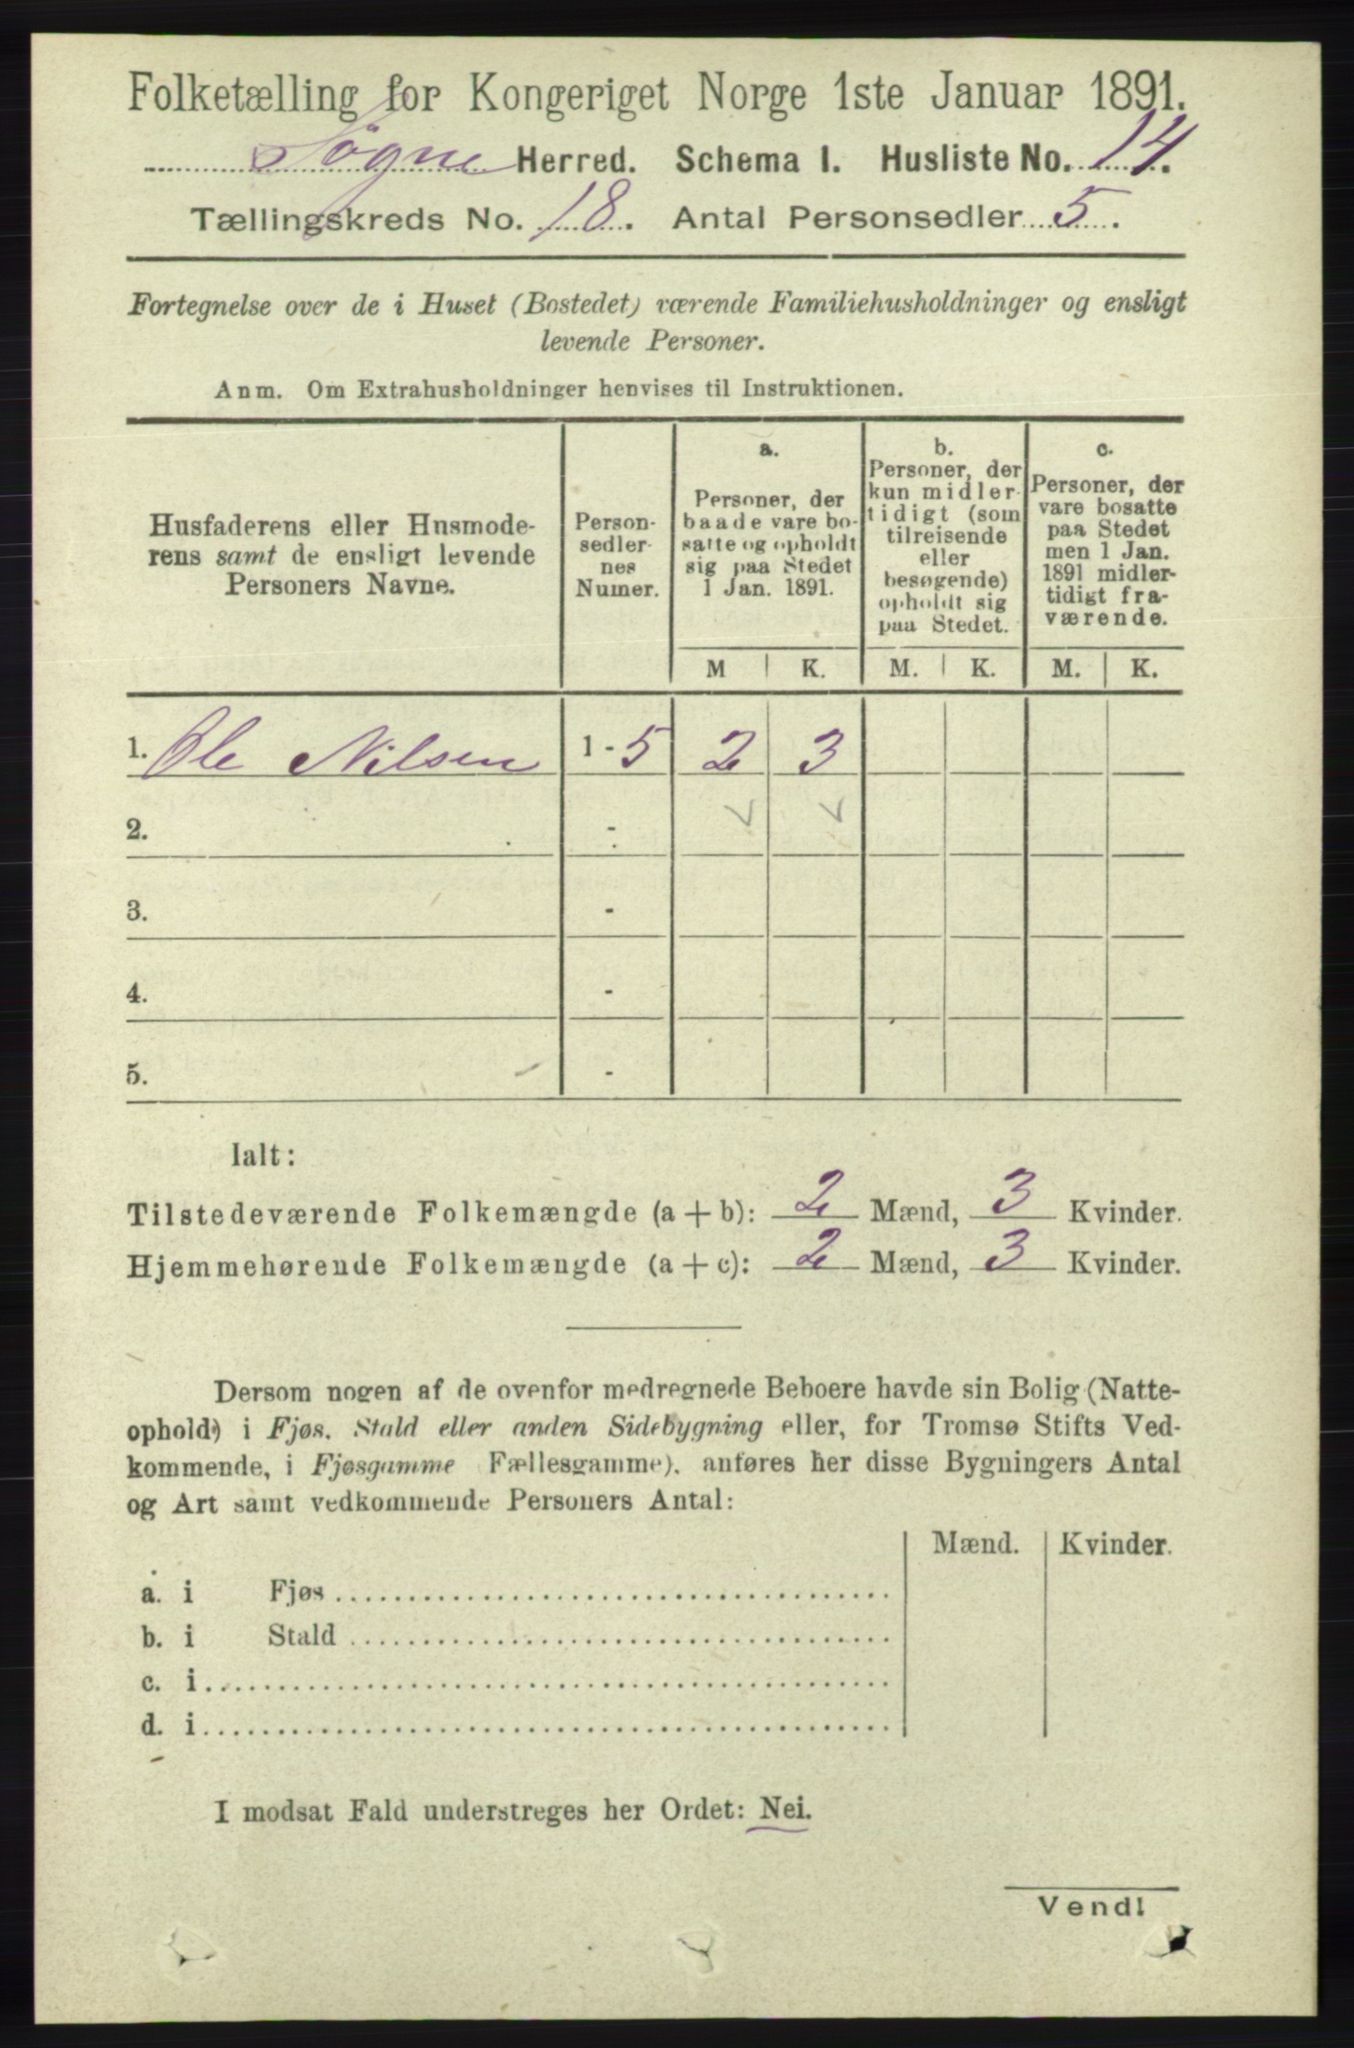 Folketælling for Kongeriget Norge 1ste Januar 1891.
Søgne Herred. Schema I. Husliste No. 14.
Tællingskreds No. 18. Antal Personsedler 5.
Fortegnelse over de i Huset (Bostedet) værende Familiehusholdninger og ensligt
levende Personer.
Anm. Om Extrahusholdninger henvises til Instruktionen.
Husfaderens eller Husmode-
rens samt de ensligt levende
Personers Navne.
Person-
sedler-
nes
Numer.
a.
Personer, der
baade vare bo-
satte og opholdt
sig paa Stedet
1 Jan. 1891.
b.
Personer, der
kun midler-
tidigt (som
tilreisende
eller
besøgende)
opholdt sig
paa Stedet.
c.
Personer, der
vare bosatte
paa Stedet
men 1 Jan.
1891 midler-
tidigt fra-
værende.
M K. M. K. M. K.
1. Ole Nilsen 1 - 5 2 3
2. -
3. -
4. -
5. -
Ialt:
Tilstedeværende Folkemængde (a + b): 2 Mænd, 3 Kvinder.
Hjemmehørende Folkemængde (a + c): 2 Mænd, 3 Kvinder.
Dersom nogen af de ovenfor medregnede Beboere havde sin Bolig (Natte-
ophold) i Fjøs, Stald eller anden Sidebygning eller, for Tromsø Stifts Ved-
kommende, i Fjøsgamme Fællesgamme), anføres her disse Bygningers Antal
og Art samt vedkommende Personers Antal:
Mænd. Kvinder.
a. i Fjøs
b. i Stald
c. i
d. i
I modsat Fald understreges her Ordet: Nei.
Vendl